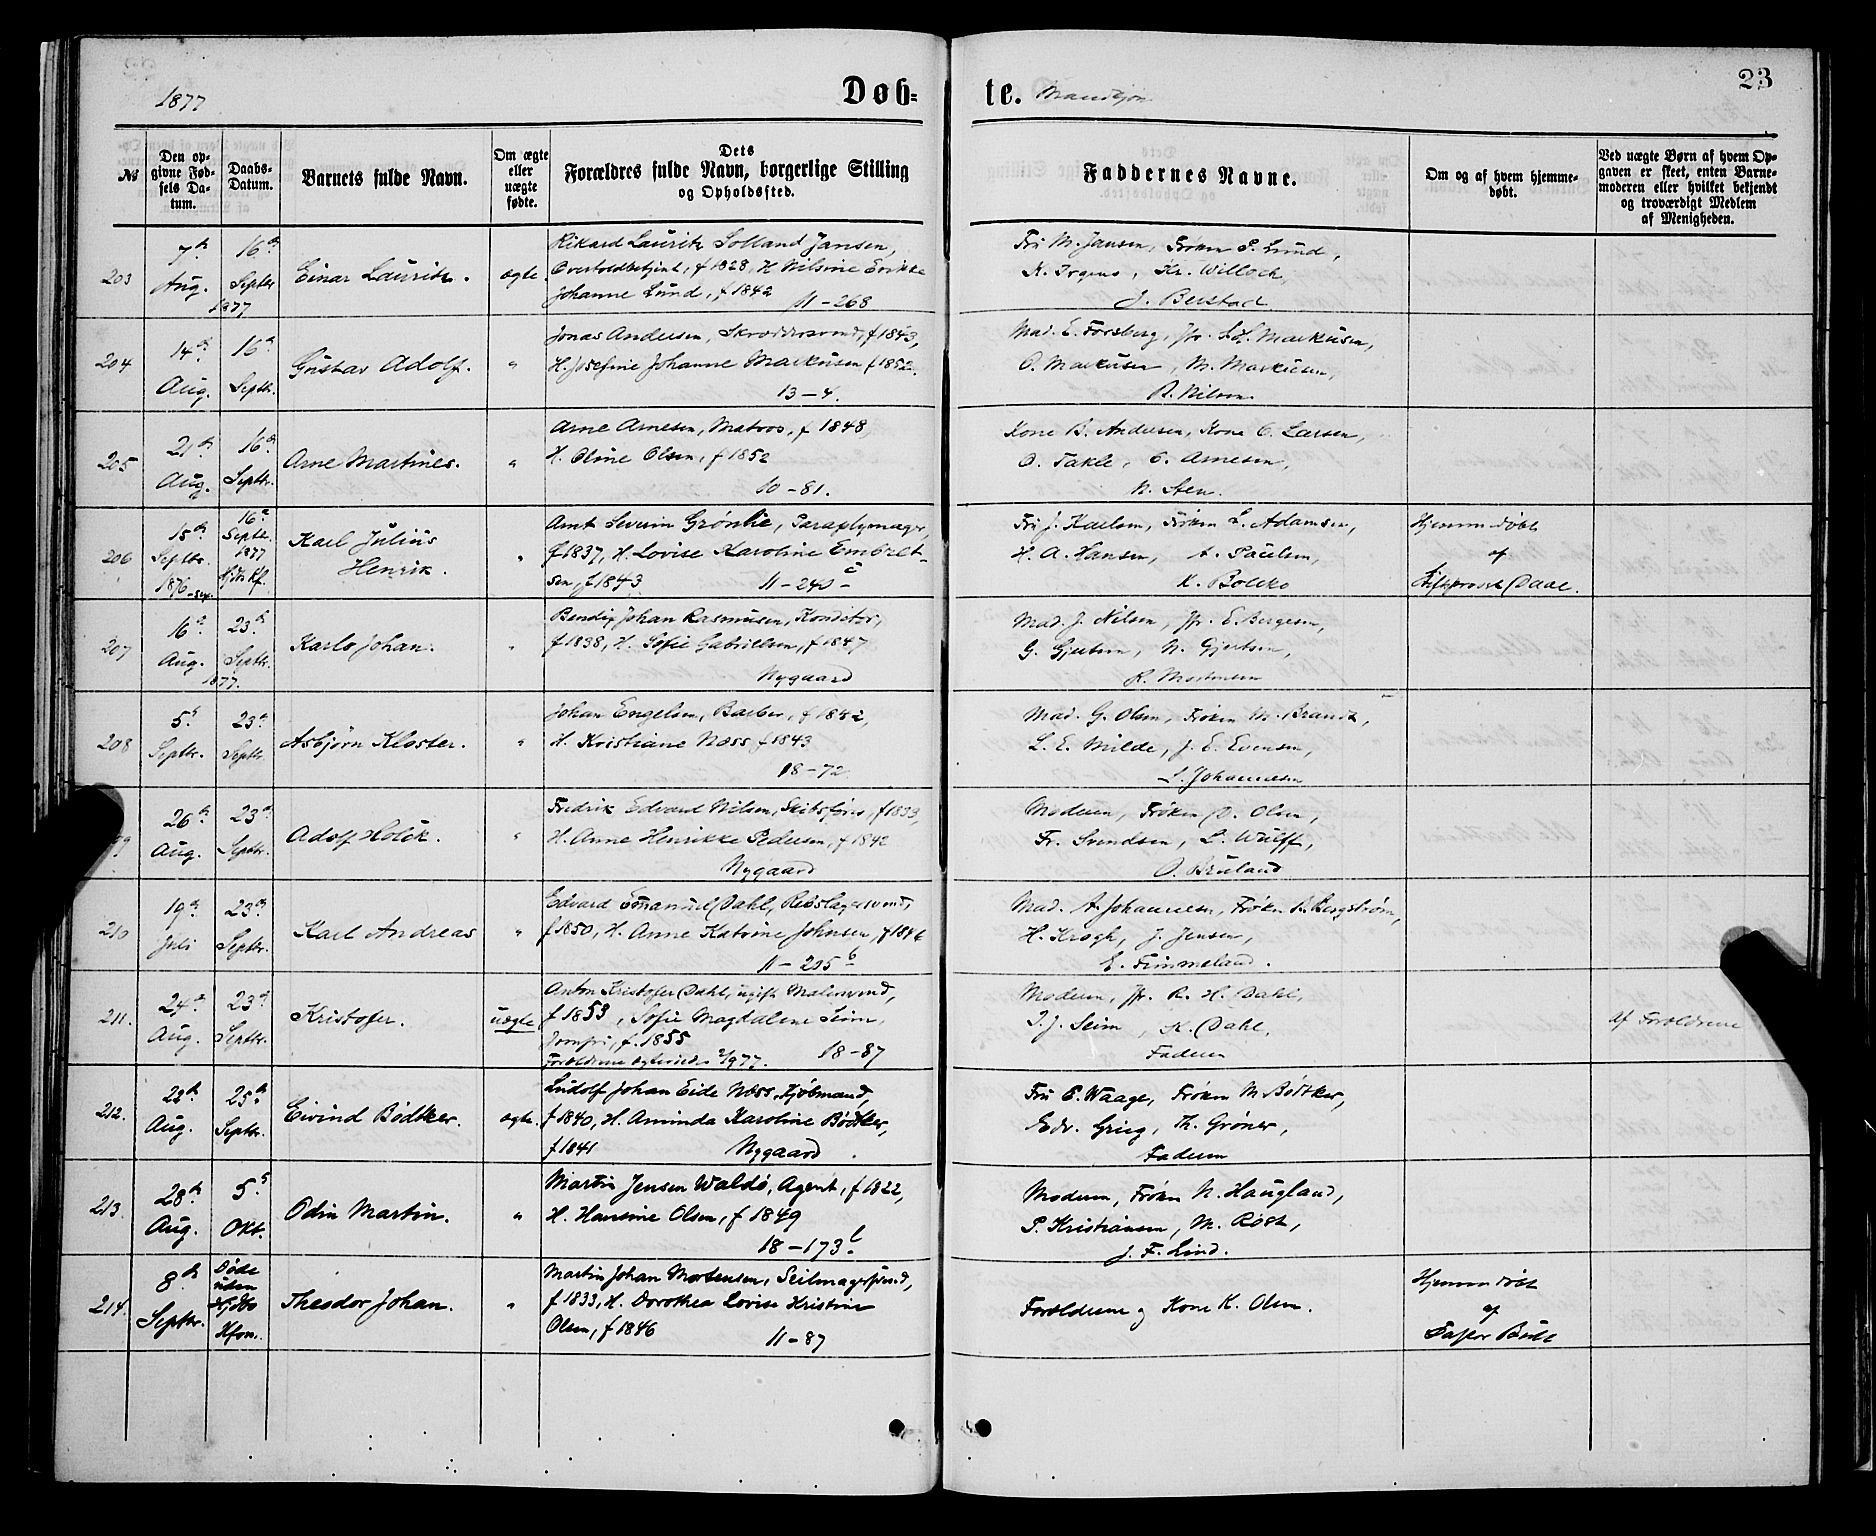 1877
Døb=
te. Mandkjøn
23
№
Den op-
givne Fød-
sels Da-
tum.
Daabs-
Datum.
Barnets fulde Navn.
Om ægte
eller
uægte
fødte.
Dets
Forældres fulde Navn, borgerlige Stilling
og Opholdssted.
Faddernes Navne.
Om og af hvem hjemme-
døbt.
Ved uægte Børn af hvem Op-
gaven er skeet, enten Barne-
moderen eller hvilket bekjendt
og troværdigt Medlem
af Menigheden.
203
7de
Aug.
16de
Septbr
1877
Einar Lauritz.
ægte.
Rikard Lauritz Solland Jansen,
f 1828, H. Nilsine Erikke
Johanne Lund, f 1842
11-268
Fru M. Jansen, Frøken S. Lund,
N. Irgens, Kr. Willoch,
J. Berstad
204
14de
Aug.
16de
Septbr.
Gustav Adolf.
"
Jonas Andersen, Skræddersvend, f 1843,
H. Josefine Johanne Markusen f 1852.
13-4.
Mad. E. Forsberg, Jfr. Markusen,
O. Markusen, M. Markusen,
R. Nilsen.
205
21de
Aug.
16de
Septbr.
Arne Martines.
"
Arne Arnesen, Matros, f 1848,
H. Oline Olsen, f 1852
10-81.
Kone B. Andersen, Kone C. Larsen,
O. Takle, C. Arnesen,
N. Sten.
206
15de
Septbr.
1876
16de
Septbr.
1877
Hjdbs Kf.
Karl Julius
Henrik.
"
Arnt Severin Grønlie, Paraplymager,
f 1837, H. Lovise Karoline Embret-
sen, f 1843
11-240 c
Fru J. Karlsen, Frøken L. Adamsen,
H. A. Hansen, A. Paulsen,
K. Boleko
Hjemmedøbt
af
Stiftsprovst Daae.
207
16de
Aug.
23de
Septbr.
1877.
Karlo Johan.
"
Bendix Johan Rasmusen, Konditor,
f 1838, H. Sofie Gabrielsen, f 1847
Nygaard
Mad. J. Nilsen, Jfr. E. Bergesen,
G. Gjertsen, N. Gjertsen,
R. Mortensen
208
5te
Septbr.
23de
Septbr.
Asbjørn Kloster.
"
Johan Engelsen, Barber, f 1842,
H. Kristiane Næss, f 1843
18-72
Mad. G. Olsen, Frøken M. Brandt,
L. E. Milde, J. E. Evensen,
S. Johannesen
9
26de
Aug.
23de
Septbr.
Adolf Holck.
"
Fredrik Edvard Nilsen, Skibsfører, f 1833,
H. Anne Henrikke Pedersen, f 1842
Nygaard
Moderen, Frøken D. Olsen,
Fr. Svendsen, L. Wulff,
O. Bruland
210
19de
Juli
23de
Septbr.
Karl Andreas
"
Edvard Emanuel Dahl, Rebslagersvend,
f 1850, H. Anne Katrine Johnsen, f 1846
11-205 b
Mad. A. Johannesen, Frøken R. Bergstrøm,
H. Krogh, J. Jensen,
E. Fimmeland.
211.
24de
Aug.
23de
Septbr.
Kristofer.
uægte
Anton Kristofer Dahl, ugift Malersvend,
f 1853, Sofie Magdalene Seim,
Jomfru, f. 1855
Forældrene ægteviede 2/9 77.
18-87
Moderen, Jfr. R. H. Dahl,
I. J. Seim, K. Dahl,
Faderen
af Forældrene
212.
23de
Aug.
25de
Septbr.
Eivind Bødtker.
ægte.
Ludolf Johan Eide Næss, Kjøbmand,
f 1840, H. Aminda Karoline Bødtker,
f 1841
Nygaard
Fru E. Waage, Frøken M. Bødtker,
Edv. Grieg, Th. Grøner,
Faderen
213.
28de
Aug.
5te
Okt.
Odin Martin.
"
Martin Jensen Waldø, Agent, f 1822,
H. Hansine Olsen, f 1849
18-173 b
Moderen, Frøken N. Haugland,
P. Kristiansen, M. Røst,
J. F. Lind.
214.
8de
Septbr.
Døde
uden
Hjdbs
Kfon.
Theodor Johan.
"
Martin Johan Mortensen, Seilmagersvend,
f 1833, H. Dorothea Lovise Kristine
Olsen, f 1846
11-87
Forældrene og Kone K. Olsen.
Hjemmedøbt
af
Pastor Bull